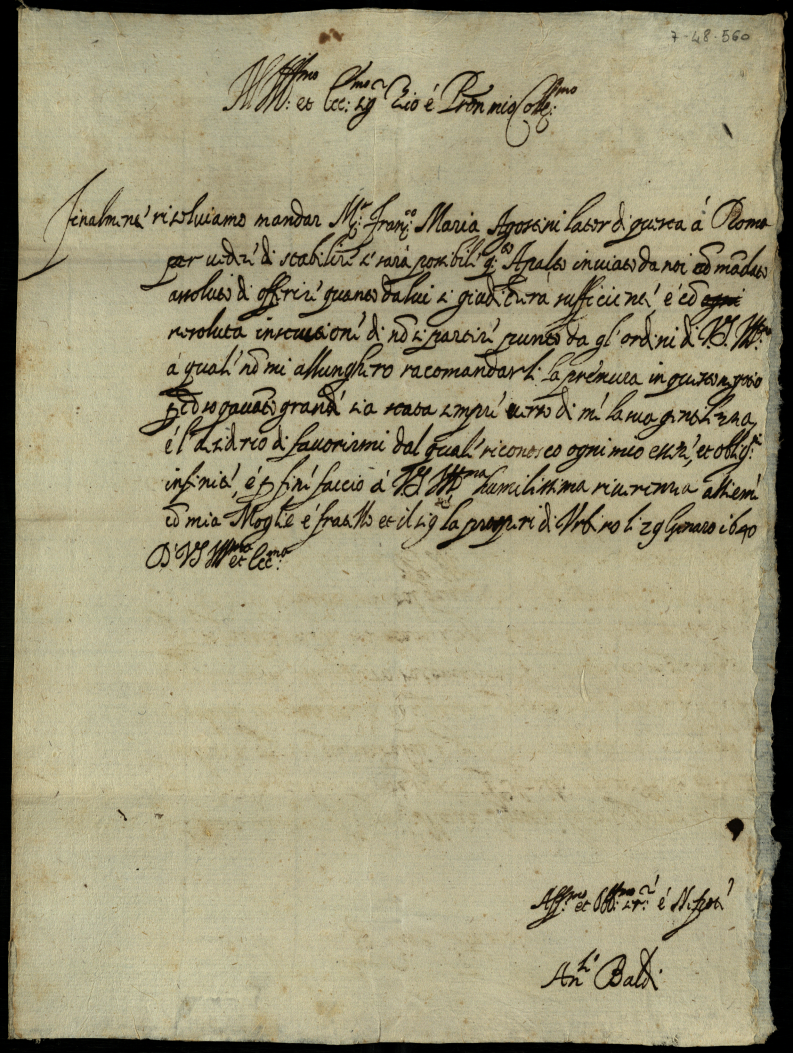 7-48-560
Ill:mo et Ecc:mo Sig:r Zio é Pron mio Coll:mo
Finalmente risolviamo mandar M:r Fran:co Maria Agostini lator di questa á Roma
per vedere di stabilire se sará possibile q:sto Apalto inviato da noi co mãdato
assoluto di offerire quanto da lui si giudicherá sufficiente é cõ
resoluta instrutione di nõ si partire punto da gl'ordini di V.S. Ill:ma
á quale nõ mi allungherò racomandarLi la premura in questo
grande sia stata sempre verso di me la sua gentilezza,
é l'desiderio di favorirmi dal quale riconosco ogni mio essere, et oblig:ni
infinite, é p fine faccio á V.S. Ill:ma humilissima riverenza assieme
cõ mia Moglie é fratello et il Sig:re la prosperi di Urbino li 29 Genaro 1640
D. V.S. Ill:ma et Ecc:ma
Aff:mo et Obl:mo Ser:re é Nepote
Ant:o Baldi